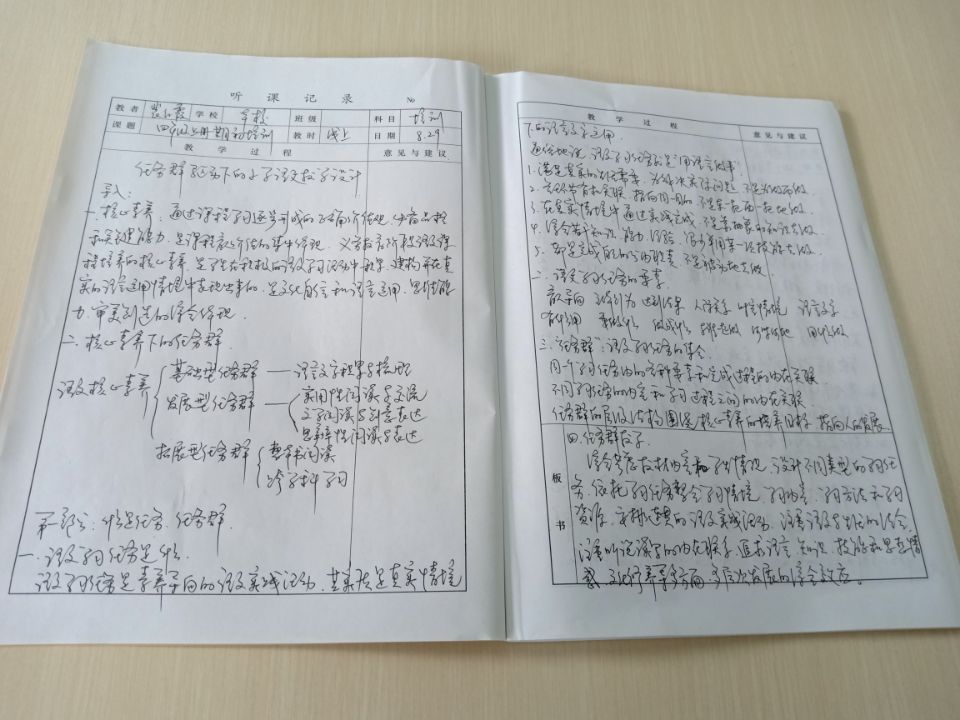 听 课 记 录 №
教者 学校 年级 班级 科目 培训
课题 四年级上册期初培训 教时 线上 日期 8.29
教 学 过 程 意见与建议
任务群驱动下的小学语文教学设计
导入：
一、核心素养：通过课程学习逐步形成的正确价值观、必备品格
和关键能力，是课程育人价值的集中体现。义务教育阶段语文课
程培养的核心素养，是学生在积极的语文学习活动中积累、建构并在真
实的语言运用情境中表现出来的，是文化自信和语言运用、思维能
力、审美创造的综合体现。
二、核心素养下的任务群
语文核心素养 基础型任务群 — 语言文字积累与梳理
发展型任务群 — 实用性阅读与交流
文学阅读与创意表达
思辨性阅读与表达
拓展型任务群 整本书阅读
跨学科学习
第一部分：什么是任务、任务群
一、语文学习任务是什么
语文学习任务是素养导向的语文实践活动，其实质是真实情境
教 学 过 程 意见与建议
下的语言文字运用。
通俗地说，语文学习任务就是“用语言做事”
1. 满足真实的 需要，为解决实际问题，不是为做而做。
2. 内在关联，指向同一目的，不是东一西一地做。
3. 在真实情境中通过实践完成，不是抽象
4. 综合类知识、能力、 ，很少单用某一种技能去做。
5. 都是完成 ，不是被动地去做。
二、语文学习任务的要素
导向 行为 达到结果 人文 情境 语言文字
有何用 做成什么 用什么做
三、“任务群”：语文学习任务的集合。
同一个学习任务内的各种要素和完成过程的内在关联
不同学习任务的内容和学习过程之间的内在关联
任务群的层级结构围绕核心素养的培养目标，指向人的发展
四、任务群教学。
板 书
综合考虑教材内容和学情况，设计不同类型的学习任
务，依托学习任务整合学习情境、学习内容、学习方法和学习
资源，安排连贯的语文实践活动，注重语文与生活的结合，
注重听说读写的内在联系，追求语言、知识、技能和思想情
感、文化修养等多方面、多层次发展的综合效应。